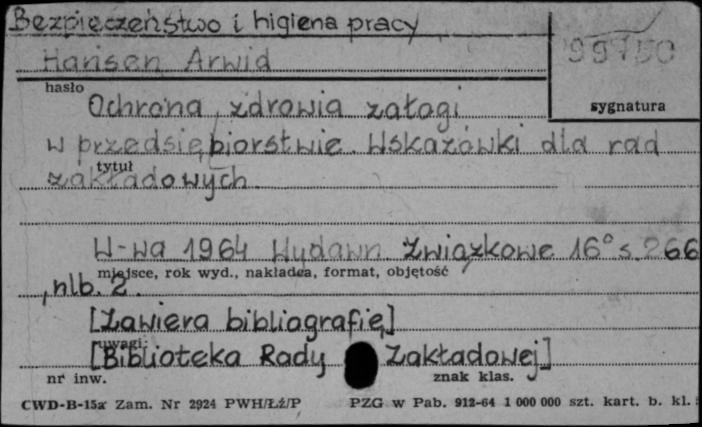 Bezpieczeństwo i higiena pracy
99750
Hansen Arwid
hasło
sygnatura
Ochrona zdrowia załogi
w przedsiębiorstwie. Wskazówki dla rad
tytuł
zakładowych.
W-wa 1964 Wydawn. Związkowe 16° s. 266
miejsce, rok wyd., nakładca, format, objętość
, nlb. 2.
[Zawiera bibliografię]
uwagi:
[Biblioteka Rady Zakładowej]
nr inw.
znak klas.
CWD-B-15a Zam. Nr 2924 PWH/Łź/P PZG w Pab. 912-64 1 000 000 szt. kart. b. kl.